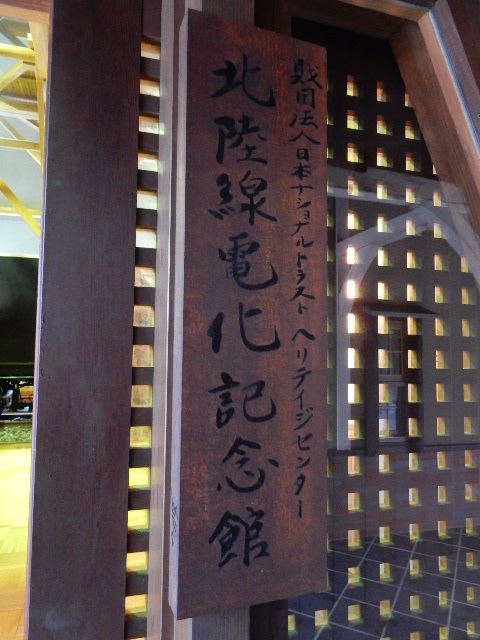 財団法人日本ナショナルトラスト ヘリテイジセンター
北陸線電化記念館